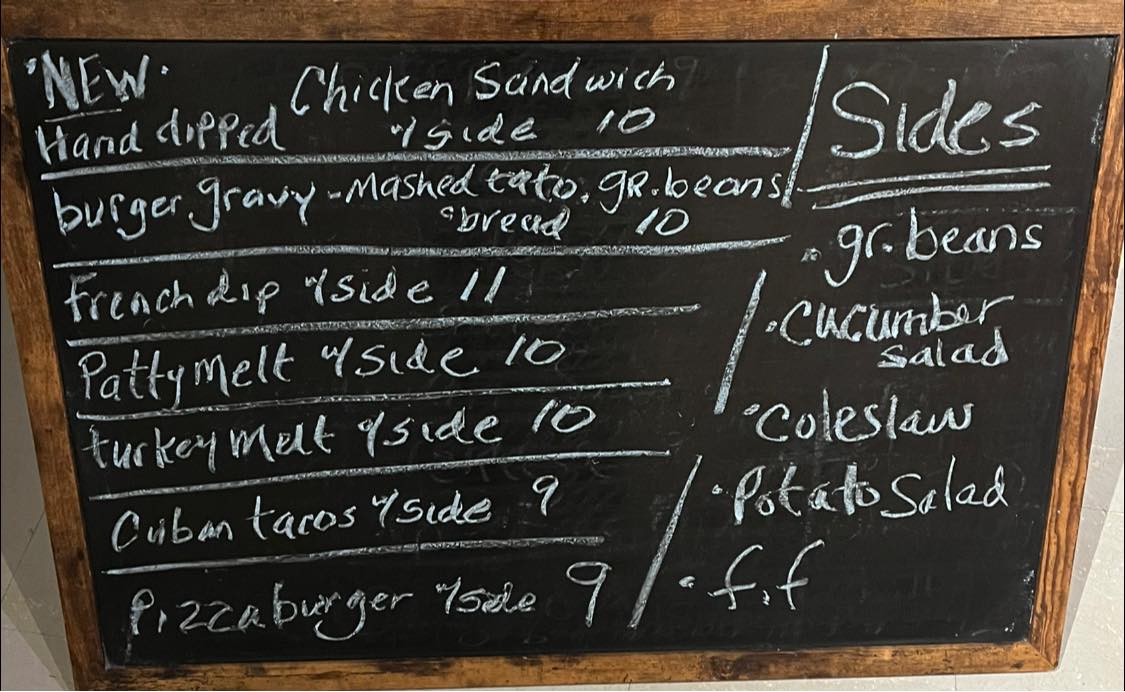 ·NEW·
Chicken Sandwich
Hand dipped w/side 10
burger gravy - Mashed tato. gR. beans
bread 10
French dip w/side 11
Patty Melt w/side 10
turkey Melt w/side 10
Cuban tacos w/side 9
Pizza burger w/side 9
Sides
· gr. beans
· Cucumber
salad
· Coleslaw
· Potato Salad
· f.f